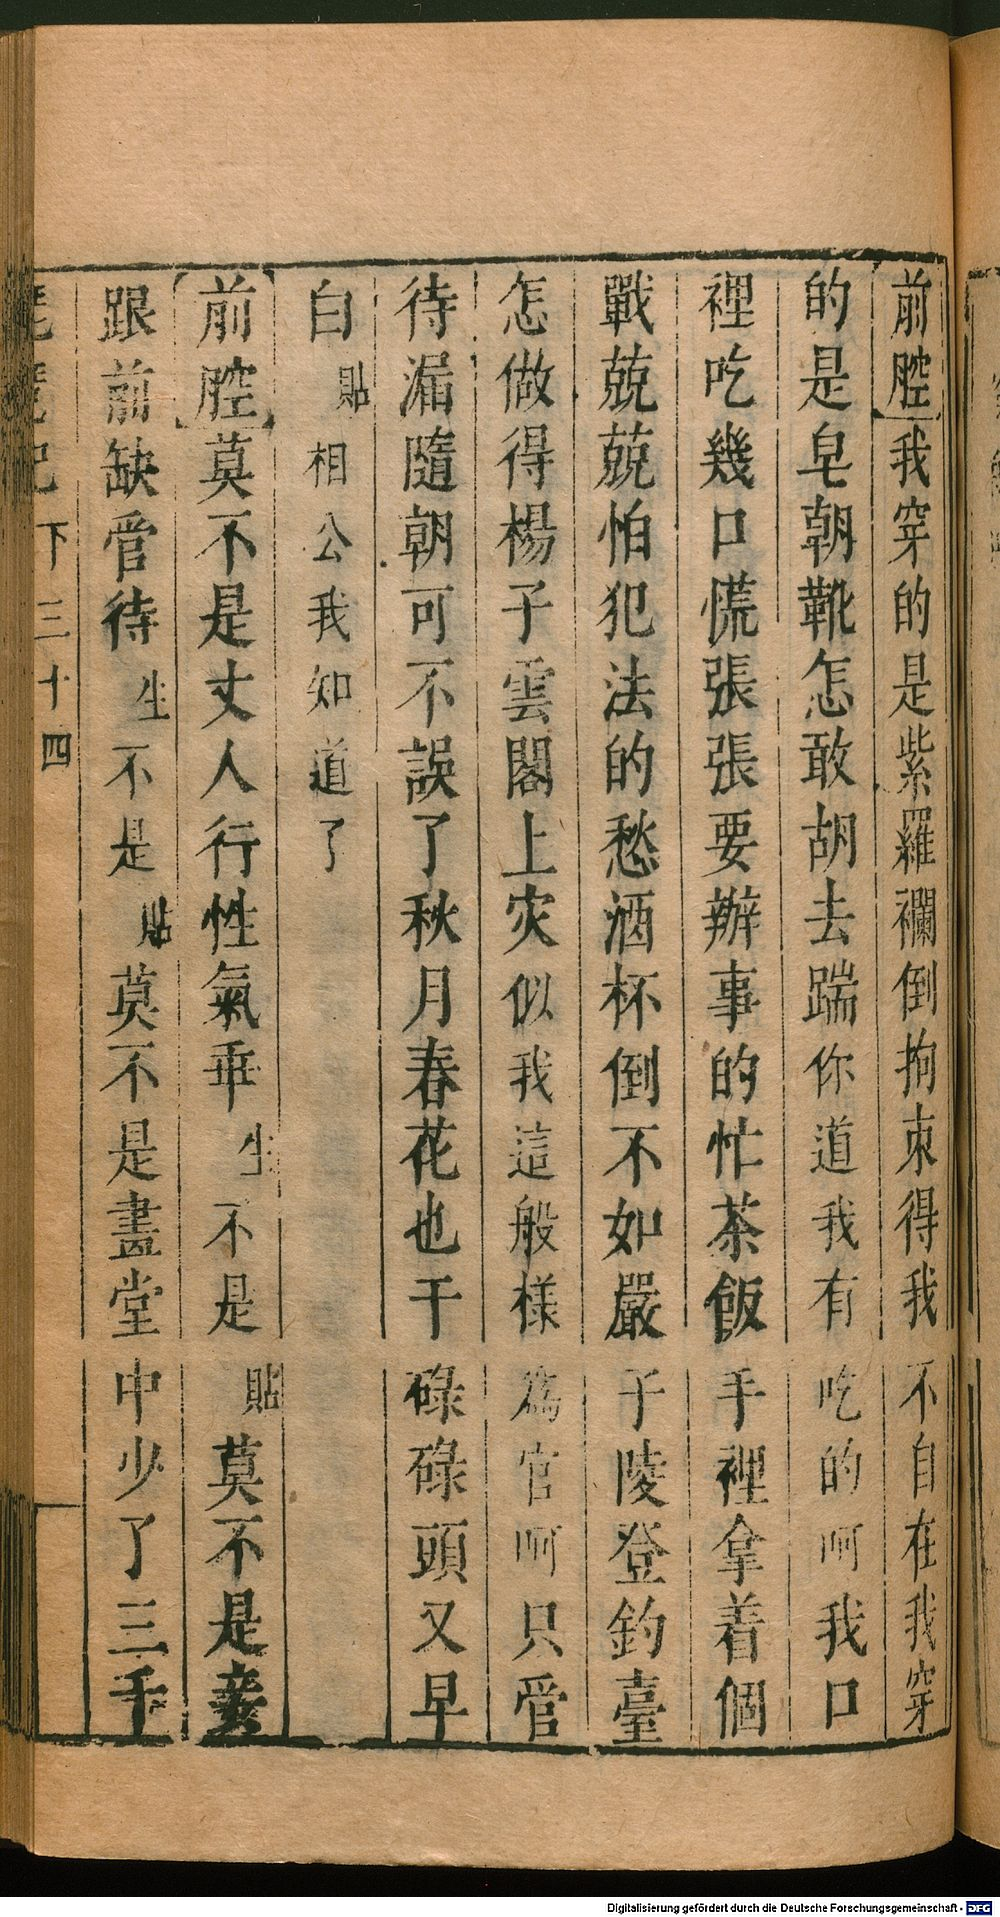 前腔我穿的是紫羅襴倒拘束得我不自在我穿
的是皂朝靴怎敢胡去踹你道我有吃的呵我口
裡吃幾口慌張張要辦事的忙茶飯手裡拿着個
戰兢兢怕犯法的愁酒杯倒不如嚴子陵登釣臺
怎做得楊子雲閣上灾似我這般樣為官呵只管
待漏隨朝可不誤了秋月春花也干碌碌頭又早
白貼相公我知道了
前腔莫不是丈人行性氣乖生不是貼莫不是妾
跟前缺管待生不是貼莫不是畫堂中少了三千
琵琶記 下 三十四
Digitalisierung gefördert durch die Deutsche Forschungsgemeinschaft - DFG